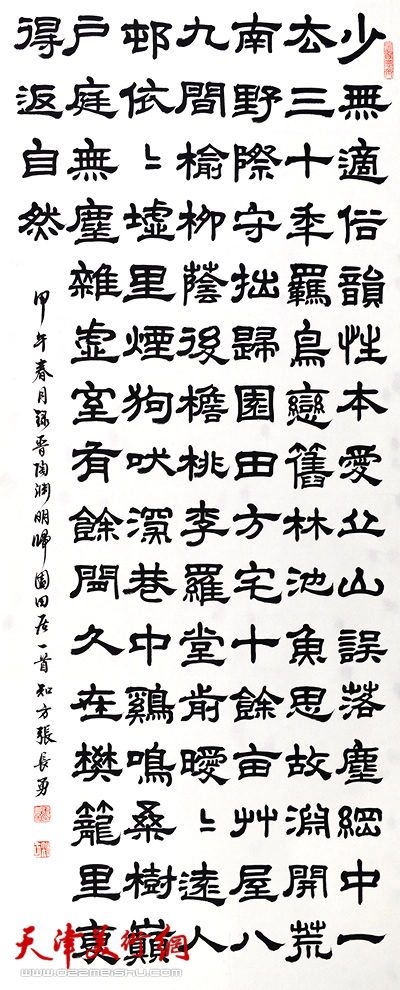 少無適俗韻性本愛丘山誤落塵網中一
去三十年羈鳥戀舊林池魚思故淵開荒
南野際守拙歸園田方宅十餘亩艸屋八
九間榆柳蔭後檐桃李羅堂前曖〻遠人
邨依〻墟里煙狗吠深巷中鷄鳴桑樹巔
戶庭無塵雜虛室有餘閒久在樊籠里復
得返自然
甲午春月録晉陶渊明歸園田居一首 知方張長勇
天津美術網
www.022meishu.com